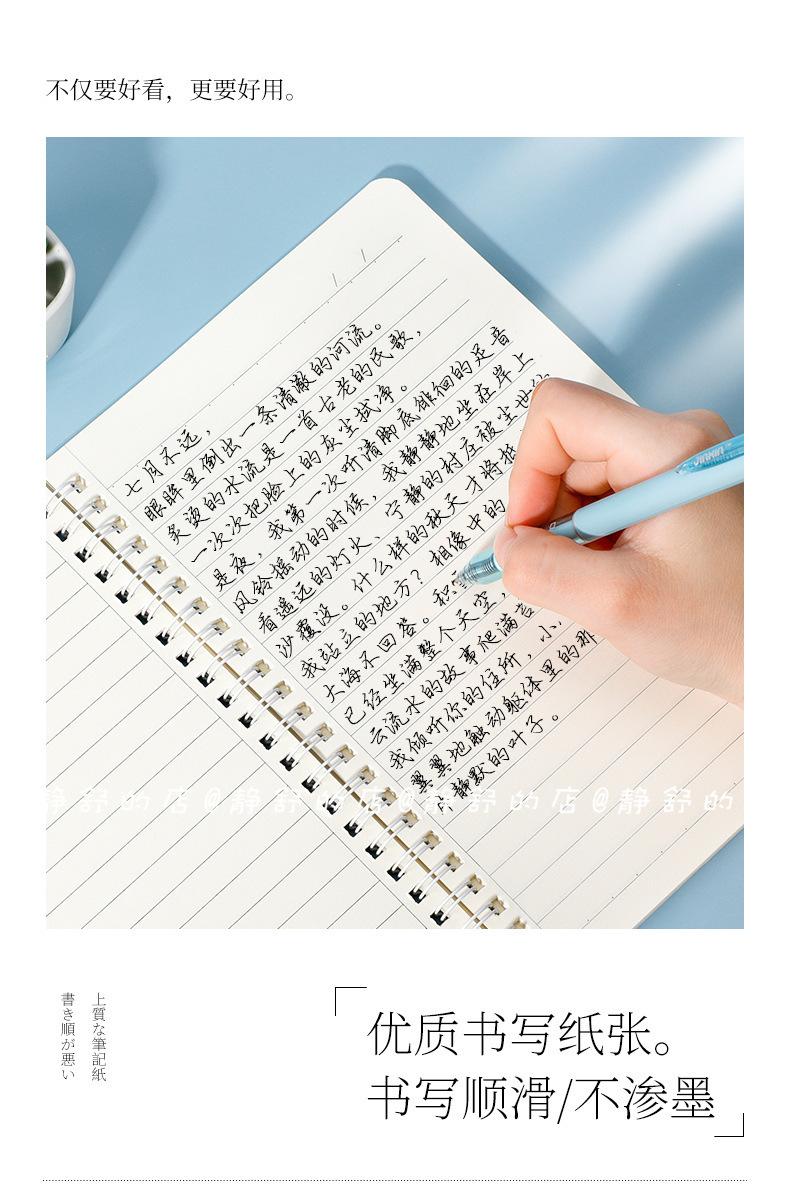 不仅要好看，更要好用。
七月不远，
眼眸里倒出一条清澈的河流。
炙烫的水流是一首古老的民歌，
一次次把脸上的灰尘拭净。
是夜，我第一次听清脚底徘徊的足音
风铃摇动的时候，我静静地坐在岸上
看遥远的灯火、宁静的村庄被尘世的
沙覆没。什么样的秋天才将抵
我站立的地方？相像中的
大海不回答。积
已经坐满整个天空，
云流水的故事爬满苔
我倾听你的住所，小
翼翼地触动躯体里的那
静默的叶子。
JINXIN
静舒的店@静舒的店@静舒的店@静舒的
上質な筆記紙
書き順が悪い
优质书写纸张。
书写顺滑/不渗墨